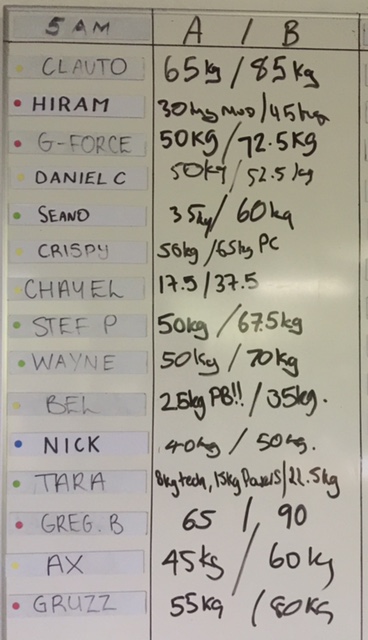 5 AM A / B
CLAUTO 65kg / 85kg
HIRAM 30kg mod / 45kg
G-FORCE 50KG / 72.5KG
DANIEL C 50kg / 52.5kg
SEANO 35kg / 60kg
CRISPY 50kg / 65kg PC
CHAYEL 17.5 / 37.5
STEF P 50kg / 67.5kg
WAYNE 50kg / 70kg
BEL 25kg PB!! / 35kg.
NICK 40kg / 50kg.
TARA 8kg tech, 15kg Powers / 22.5kg
GREG. B 65 / 90
AX 45kg / 60kg
GRUZZ 55kg / 80kg